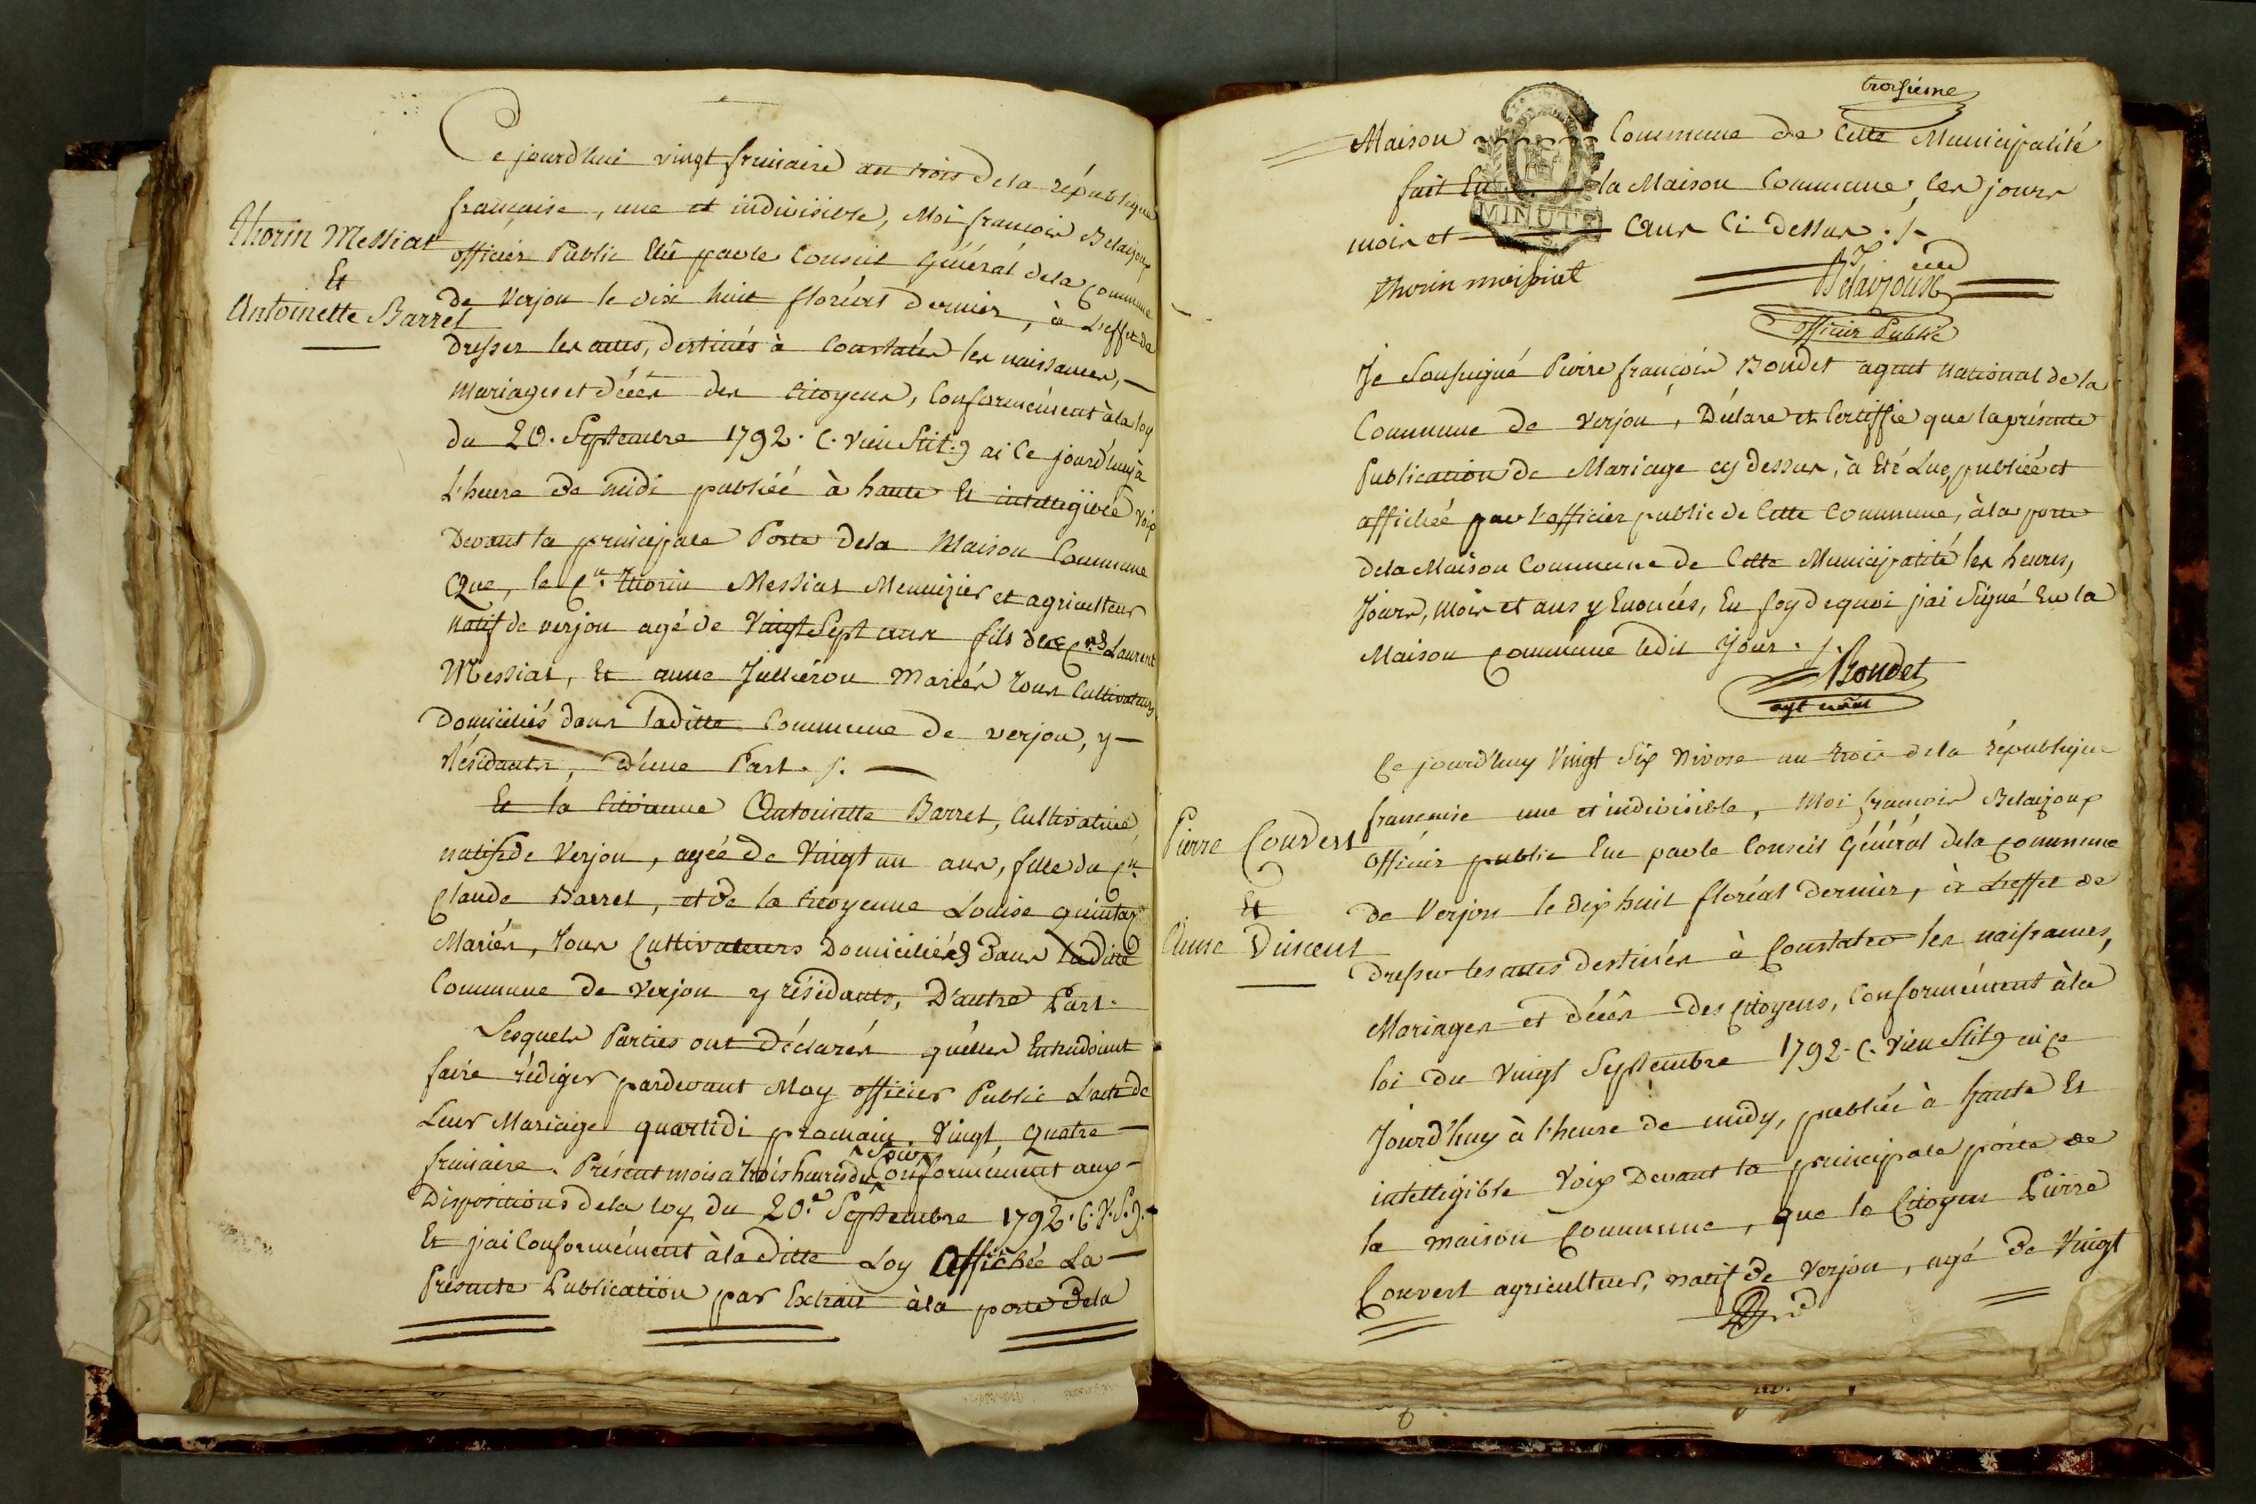 Thorin Messiat
Et
Antoinette Barret
Ce jourd'hui vingt frimaire an trois dela république
française, une et indivisible, Moi françois Belaijoux
officier Public Elû par le Conseil Général dela Commune
de Verjon le dix huit floréal dernier, à L'effet de
Dresser les actes, destinés à Constater les naissances, —
Mariages et décès des Citoyens, Conformément à la loy
du 20. Septembre 1792. (. vieu Stil.) ai Ce jourd'huy à
L'heure de midi publiéé à haute Et intelligible voix
Devant la principale Porte dela Maison Commune
Que, le Cen. Thorin Messiat Menuizier et agriculteur
natif de verjon agé de Vingt Sept ans fils des Cens Laurent
Messiat, Et anne Jullieron Mariés tous Cultivateurs
Domiciliés dans laditte Commune de verjon, y —
Résidants, d'une Part. /. —
Et la Citoienne Antoinette Barret, Cultivatrice,
natif de Verjon, agéé de Vingt un ans, fille du Cn.
Claude Barret, et de la Citoyenne Louise quintar
Mariés, tous Cultivateurs Domiciliés dans laditte
Commune de Verjon y résidants, D'autre Part.
Lesquels Parties ont déclarés qu'elles Entendoint
faire rédiger pardevant Moy officier Public L'acte de
Leur Mariage quartidi promain, Vingt quatre —
frimaire. Présent mois a trois heures du Soir Conformément aux —
Dispositions dela loy du 20.e Septembre 1792. (. V. S.).
Et j'ai Conformément à la ditte Loy Affichéé La —
Présente Publication par Extrait à la porte dela
troisième
Maison Commune de Cette Municipalité
fait En la Maison Commune, les jours
mois et ans Ci dessus. /.
MINUTE
Thorin meissiat
Belaijoux
officier Public
Je Soussigné Pierre françois Bondet agent national de la
Commune de Verjon, Déclare et Certiffie que la présente
Publication de Mariage cy dessus, à Eté Lue, publiéé et
affichéé par l'officier public de Cette Commune, à la porte
dela Maison Commune de Cette Municipalité les heures,
Jours, mois et ans y Enoncés, En foy dequoi j'ai Signé En la
Maison Commune ledit Jour. /.
Bondet
agt naal
Pierre Convert
Et
Anne Vincent
Ce jourd'huy Vingt Six Nivose an trois dela république
francaise une et indivisible, Moi françois Belaijoux
officier public Elu par le Conseil Général dela Commune
de Verjon le dix huit floréal dernier, à L'effet de
dresser les actes destinés à Constater les naissances,
Mariages et décès des Citoyens, Conformément à la
loi du Vingt Septembre 1792. (. Vieu Stil) ai Ce
Jourd'huy à l'heure de midy, publiéé à haute Et
intelligible Voix Devant la principale porte de
la maison Commune, que le Citoyen Pierre
Convert agriculteur, natif de Verjon, agé de Vingt